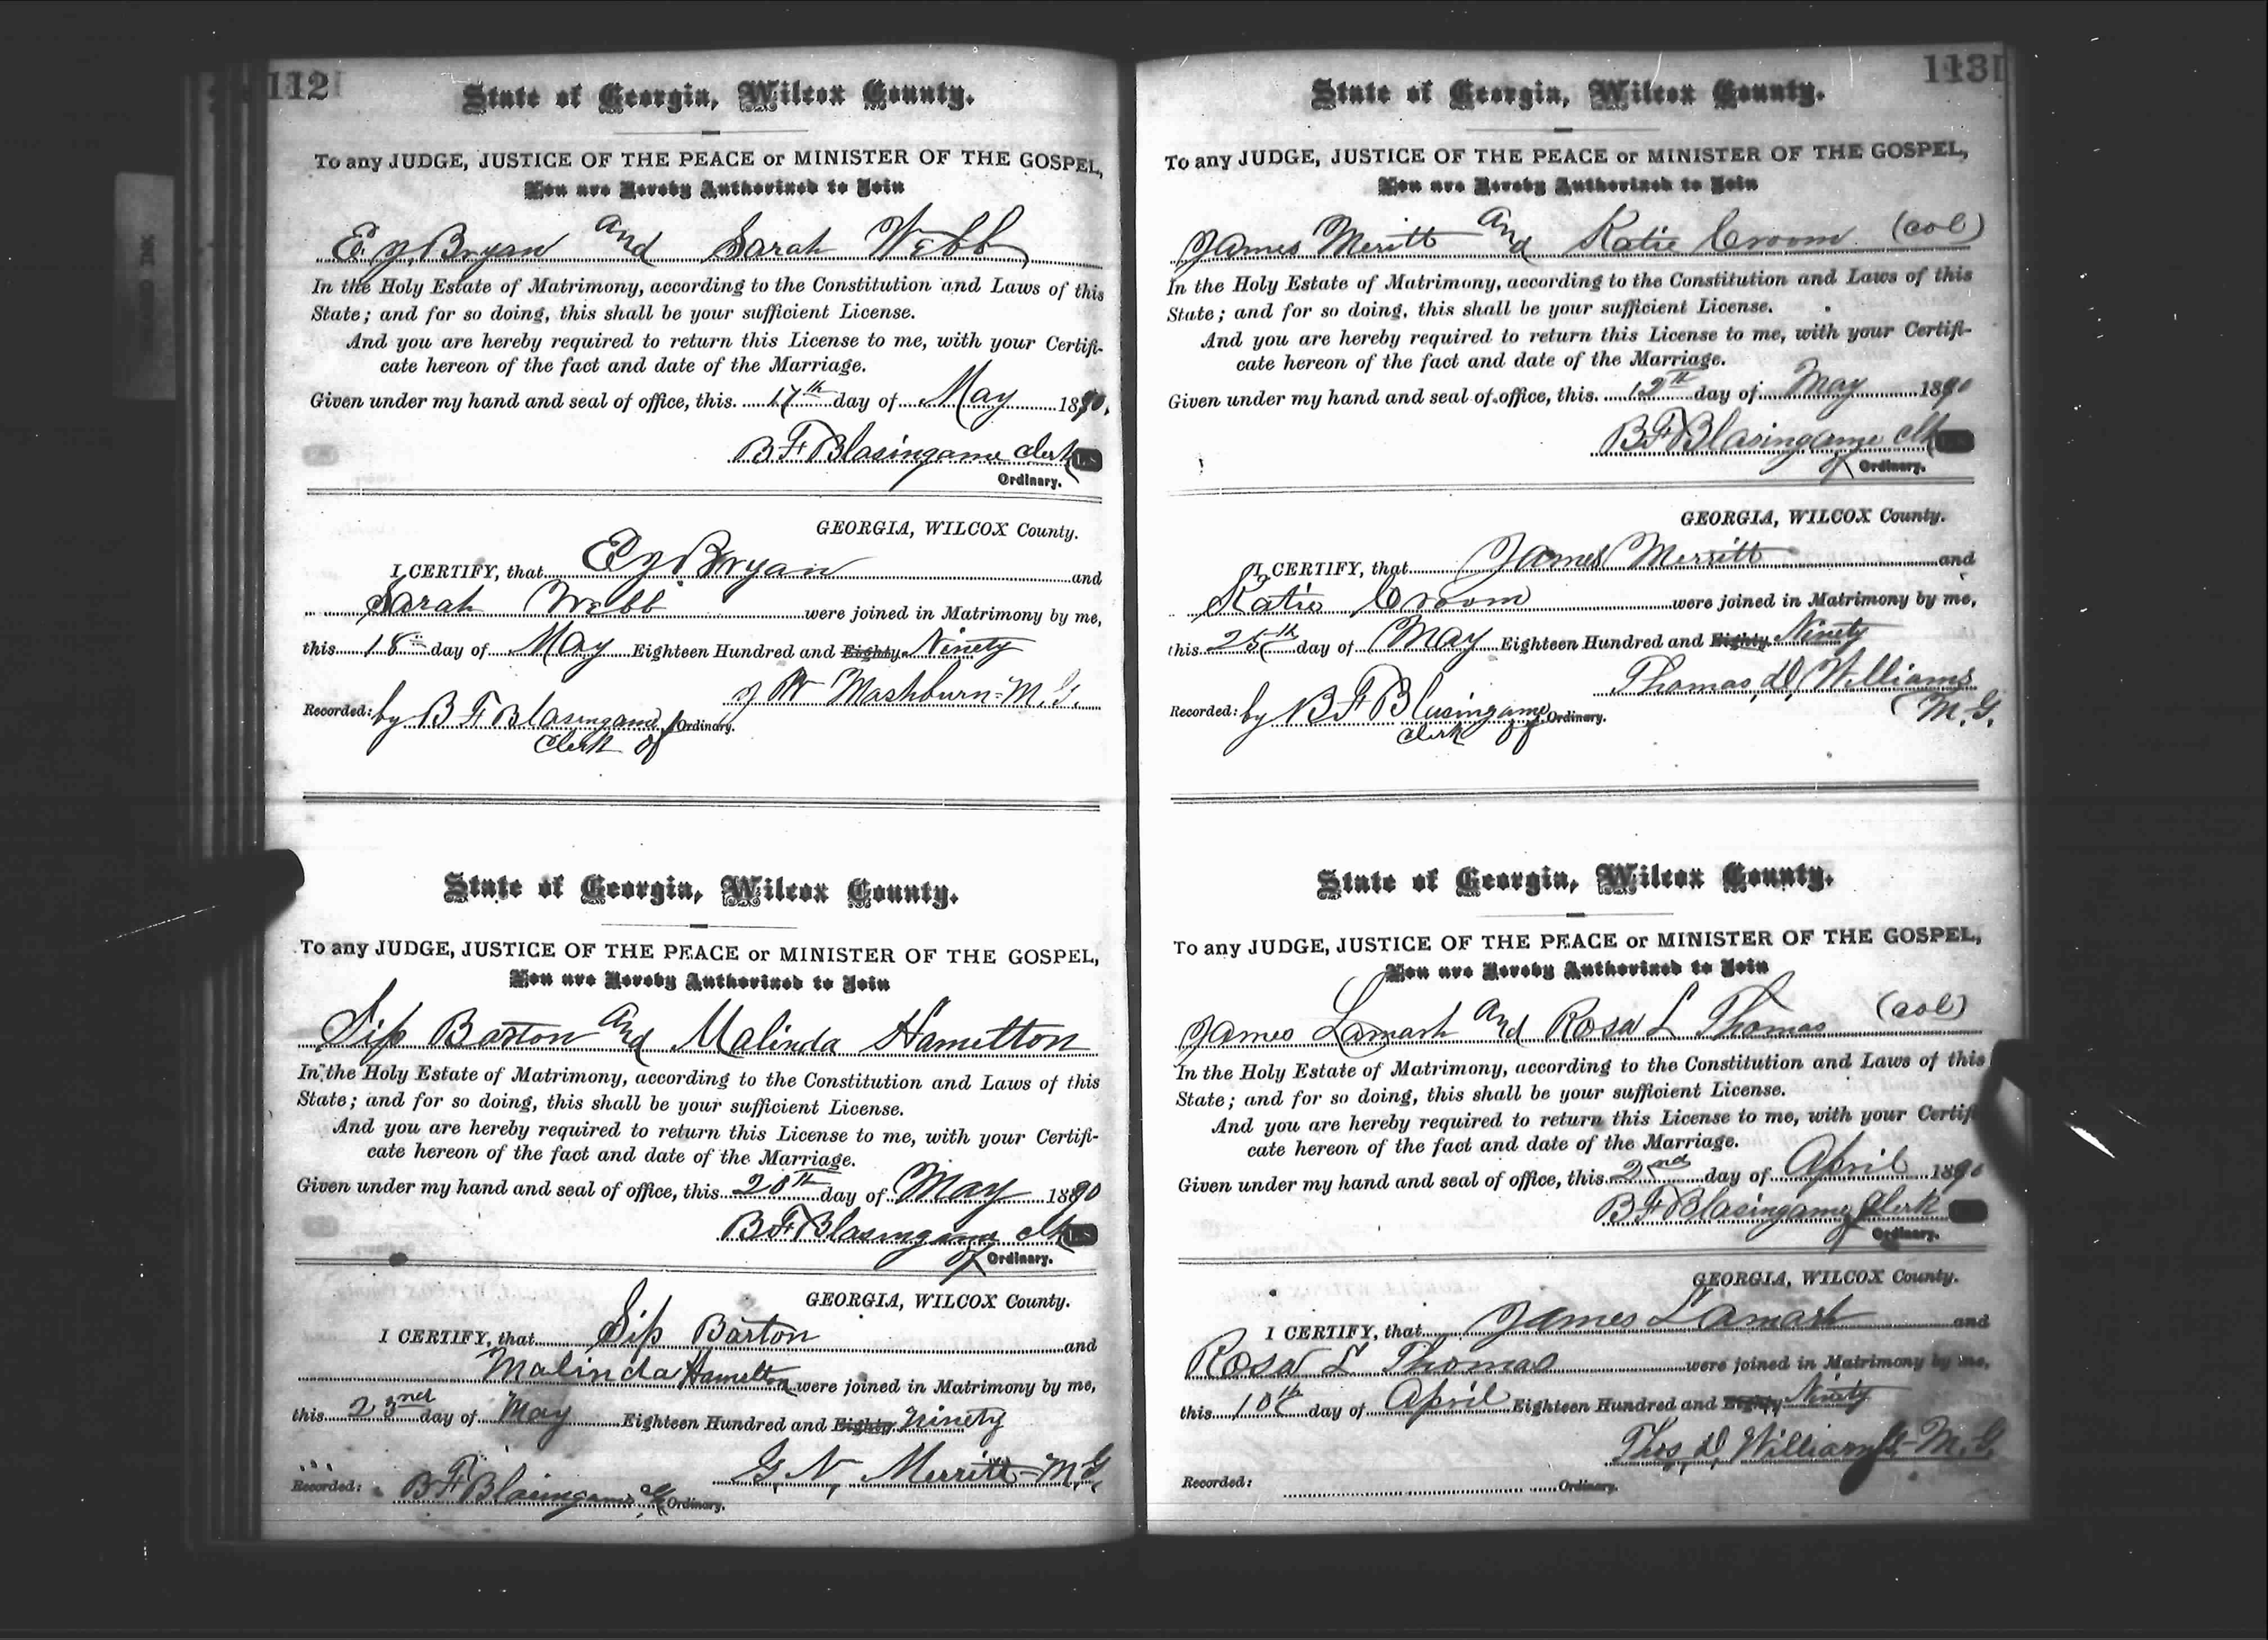 112
State of Georgia, Wilcox County.
To any JUDGE, JUSTICE OF THE PEACE or MINISTER OF THE GOSPEL,
You are Hereby Authorized to Join
E y Bryan and Sarah Webb
In the Holy Estate of Matrimony, according to the Constitution and Laws of this
State; and for so doing, this shall be your sufficient License.
And you are hereby required to return this License to me, with your Certifi-
cate hereon of the fact and date of the Marriage.
Given under my hand and seal of office, this 17th day of May 1890.
B F Blasingame Clerk L.S.
Ordinary.
GEORGIA, WILCOX County.
I CERTIFY, that E y Bryan and
Sarah Webb were joined in Matrimony by me,
this 18th day of May Eighteen Hundred and Eighty Ninety
J W Mashburn M.G.
Recorded: by B F Blasingame Ordinary.
Clerk of
State of Georgia, Wilcox County.
To any JUDGE, JUSTICE OF THE PEACE or MINISTER OF THE GOSPEL,
You are Hereby Authorized to Join
Sip Barton and Malinda Hamilton
In the Holy Estate of Matrimony, according to the Constitution and Laws of this
State; and for so doing, this shall be your sufficient License.
And you are hereby required to return this License to me, with your Certifi-
cate hereon of the fact and date of the Marriage.
Given under my hand and seal of office, this 20th day of May 1890
B F Blasingame clk L.S.
of Ordinary.
GEORGIA, WILCOX County.
I CERTIFY, that Sip Barton and
Malinda Hamelton were joined in Matrimony by me,
this 23nd day of May Eighteen Hundred and Eighty ninety
G. N. Merritt M.G.
Recorded: B F Blasingame Ordinary.
113
State of Georgia, Wilcox County.
To any JUDGE, JUSTICE OF THE PEACE or MINISTER OF THE GOSPEL,
You are Hereby Authorized to Join
James Meritt and Katie Croom (col)
In the Holy Estate of Matrimony, according to the Constitution and Laws of this
State; and for so doing, this shall be your sufficient License.
And you are hereby required to return this License to me, with your Certifi-
cate hereon of the fact and date of the Marriage.
Given under my hand and seal of office, this 12th day of May 1890
B F Blasingame clk
of Ordinary.
GEORGIA, WILCOX County.
I CERTIFY, that James Merritt and
Katie Croom were joined in Matrimony by me,
this 25th day of May Eighteen Hundred and Eighty Ninety
Thomas D Williams
M.G.
Recorded: by B F Blasingame Ordinary.
Clerk of
State of Georgia, Wilcox County.
To any JUDGE, JUSTICE OF THE PEACE or MINISTER OF THE GOSPEL,
You are Hereby Authorized to Join
James Lamash and Rosa L Thomas (col)
In the Holy Estate of Matrimony, according to the Constitution and Laws of this
State; and for so doing, this shall be your sufficient License.
And you are hereby required to return this License to me, with your Certif
cate hereon of the fact and date of the Marriage.
Given under my hand and seal of office, this 2nd day of April 1890
B F Blasingame Clerk
of Ordinary.
GEORGIA, WILCOX County.
I CERTIFY, that James Lamash and
Rosa L Thomas were joined in Matrimony by me,
this 10th day of April Eighteen Hundred and Eighty Ninety
Thos D Williams M.G.
Recorded: Ordinary.